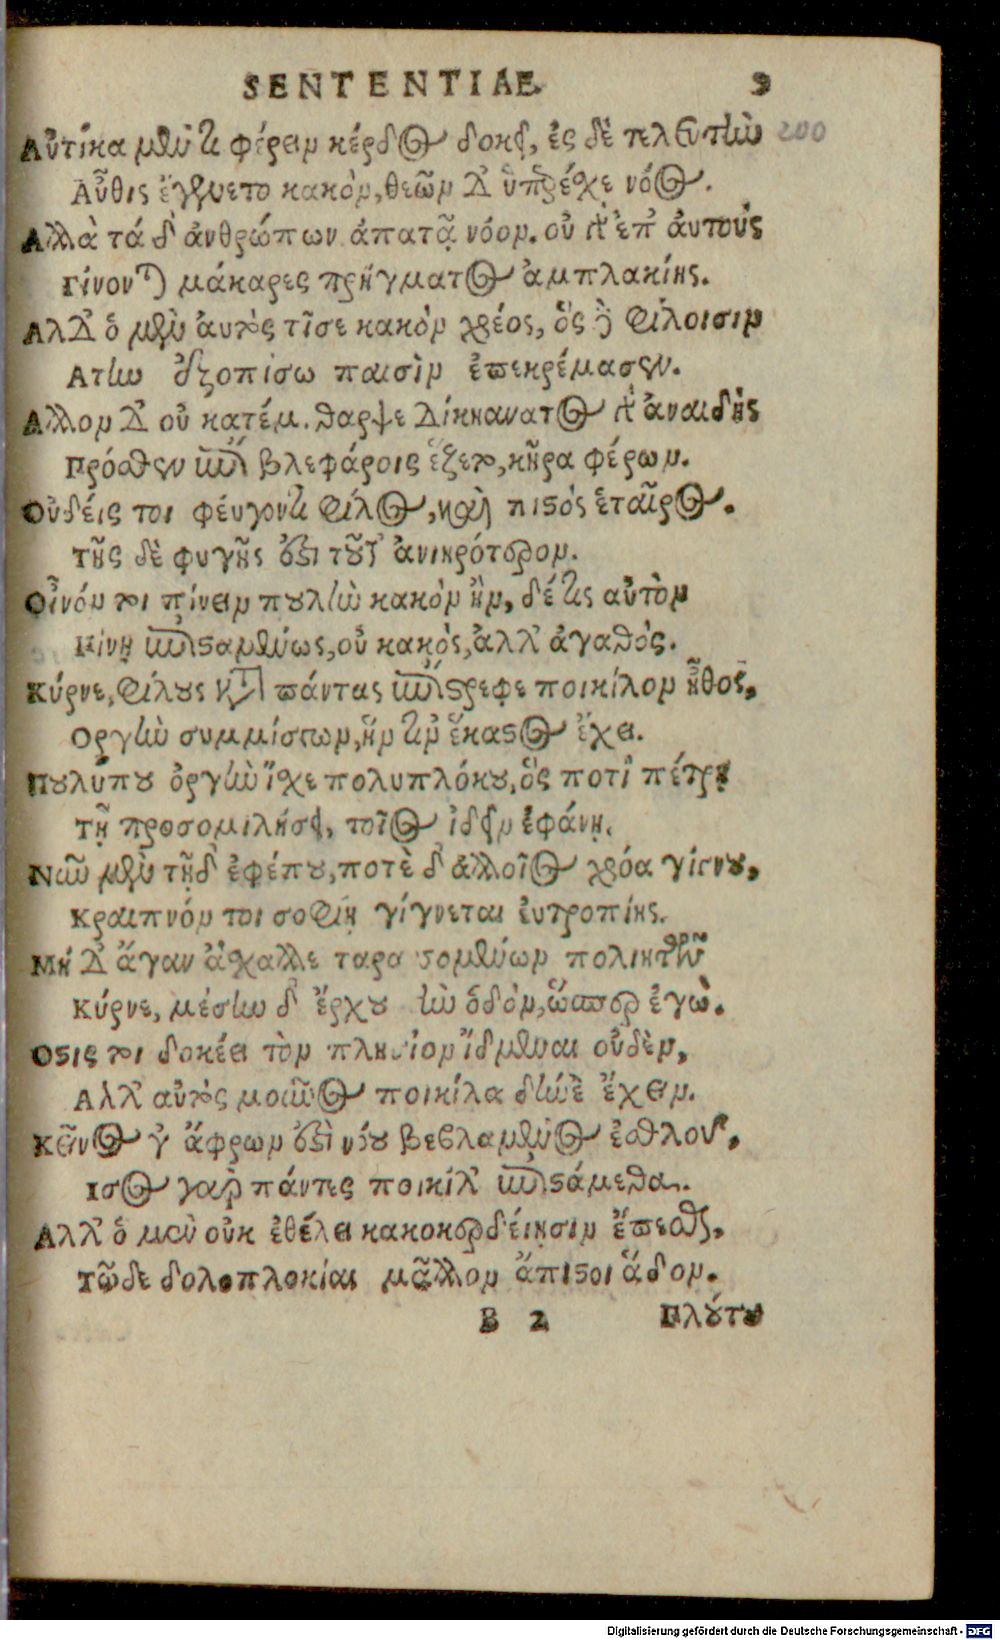 SENTENTIAE. 9
Αὐτίκα μέν τι φέρειν κέρδος δοκεῖ, ἐς δὲ τελευτὴν 200
Αὖθις ἔγενετο κακὸν, θεῶν δ' ὑπερέχε νόος.
Αλλὰ τά δ' ἀνθρώπων ἀπατᾷ νόον. οὐ γὰρ ἐπ' ἀυτούς
Γίνονται μάκαρες πρήγματος ἀμπλακίης.
Αλλ' ὁ μὲν ἀυτὸς τῖσε κακὸν χρέος, ὃς φίλοισιν
Ατην ἐξοπίσω παισὶν ἐπεκρέμασεν.
Αλλον δ' οὐ κατέμ. θαρψε δίκη θάνατος γὰρ ἀναιδὴς
Πρόσθεν ἐπὶ βλεφάροις ἕζετο, κῆρα φέρων.
Οὐδείς τοι φέυγοντι φίλος, καὶ πιστὸς ἑταῖρος.
Τῆς δὲ φυγῆς ἐστι τοῦτ' ἀνιηρότερον.
Οἶνόν τοι πίνειν πουλὺν κακὸν ἢν, δέ τις αὐτὸν
Πίνῃ ἐπισταμένως, οὐ κακὸς, ἀλλ' ἀγαθός.
Κύρνε, φίλους κατὰ πάντας ἐπίστρεφε ποικίλον ἦθος,
Οργὴν συμμίσγων, ἥν τιν ἕκαστος ἔχει.
Πουλύπου ὀργὴν ἴχε πολυπλόκου, ὃς ποτὶ πέτρῃ
Τῇ προσομιλήσει, τοῖος ἰδεῖν ἐφάνη.
Νῦν μὲν τῇδ' ἐφέπου, ποτὲ δ' ἀλλοῖος χρόα γίγνου,
Κραιπνόν τοι σοφίη γίγνεται ἐυτροπίης.
Μή δ' ἄγαν ἄσχαλλε ταρασσομένων πολιητῶν
Κύρνε, μέσην δ' ἔρχου τὴν ὁδὸν, ὥσπερ ἐγώ.
Οστις τοι δοκέει τὸν πλησίον ἴδμεναι οὐδὲν,
Αλλ' αὐτὸς μοῦνος ποικίλα δήνε' ἔχειν.
Κεῖνός γ' ἄφρων ἐστὶ νόου βεβλαμμένος ἐσθλοῦ,
Ισως γὰρ πάντες ποικίλ' ἐπιστάμεθα.
Αλλ' ὁ μὲν οὐκ ἐθέλει κακοκερδείῃσιν ἕπεσθαι,
Τῷδε δολοπλοκίαι μᾶλλον ἄπιστοι ἅδον.
B 2 Πλούτου
Digitalisierung gefördert durch die Deutsche Forschungsgemeinschaft - DFG